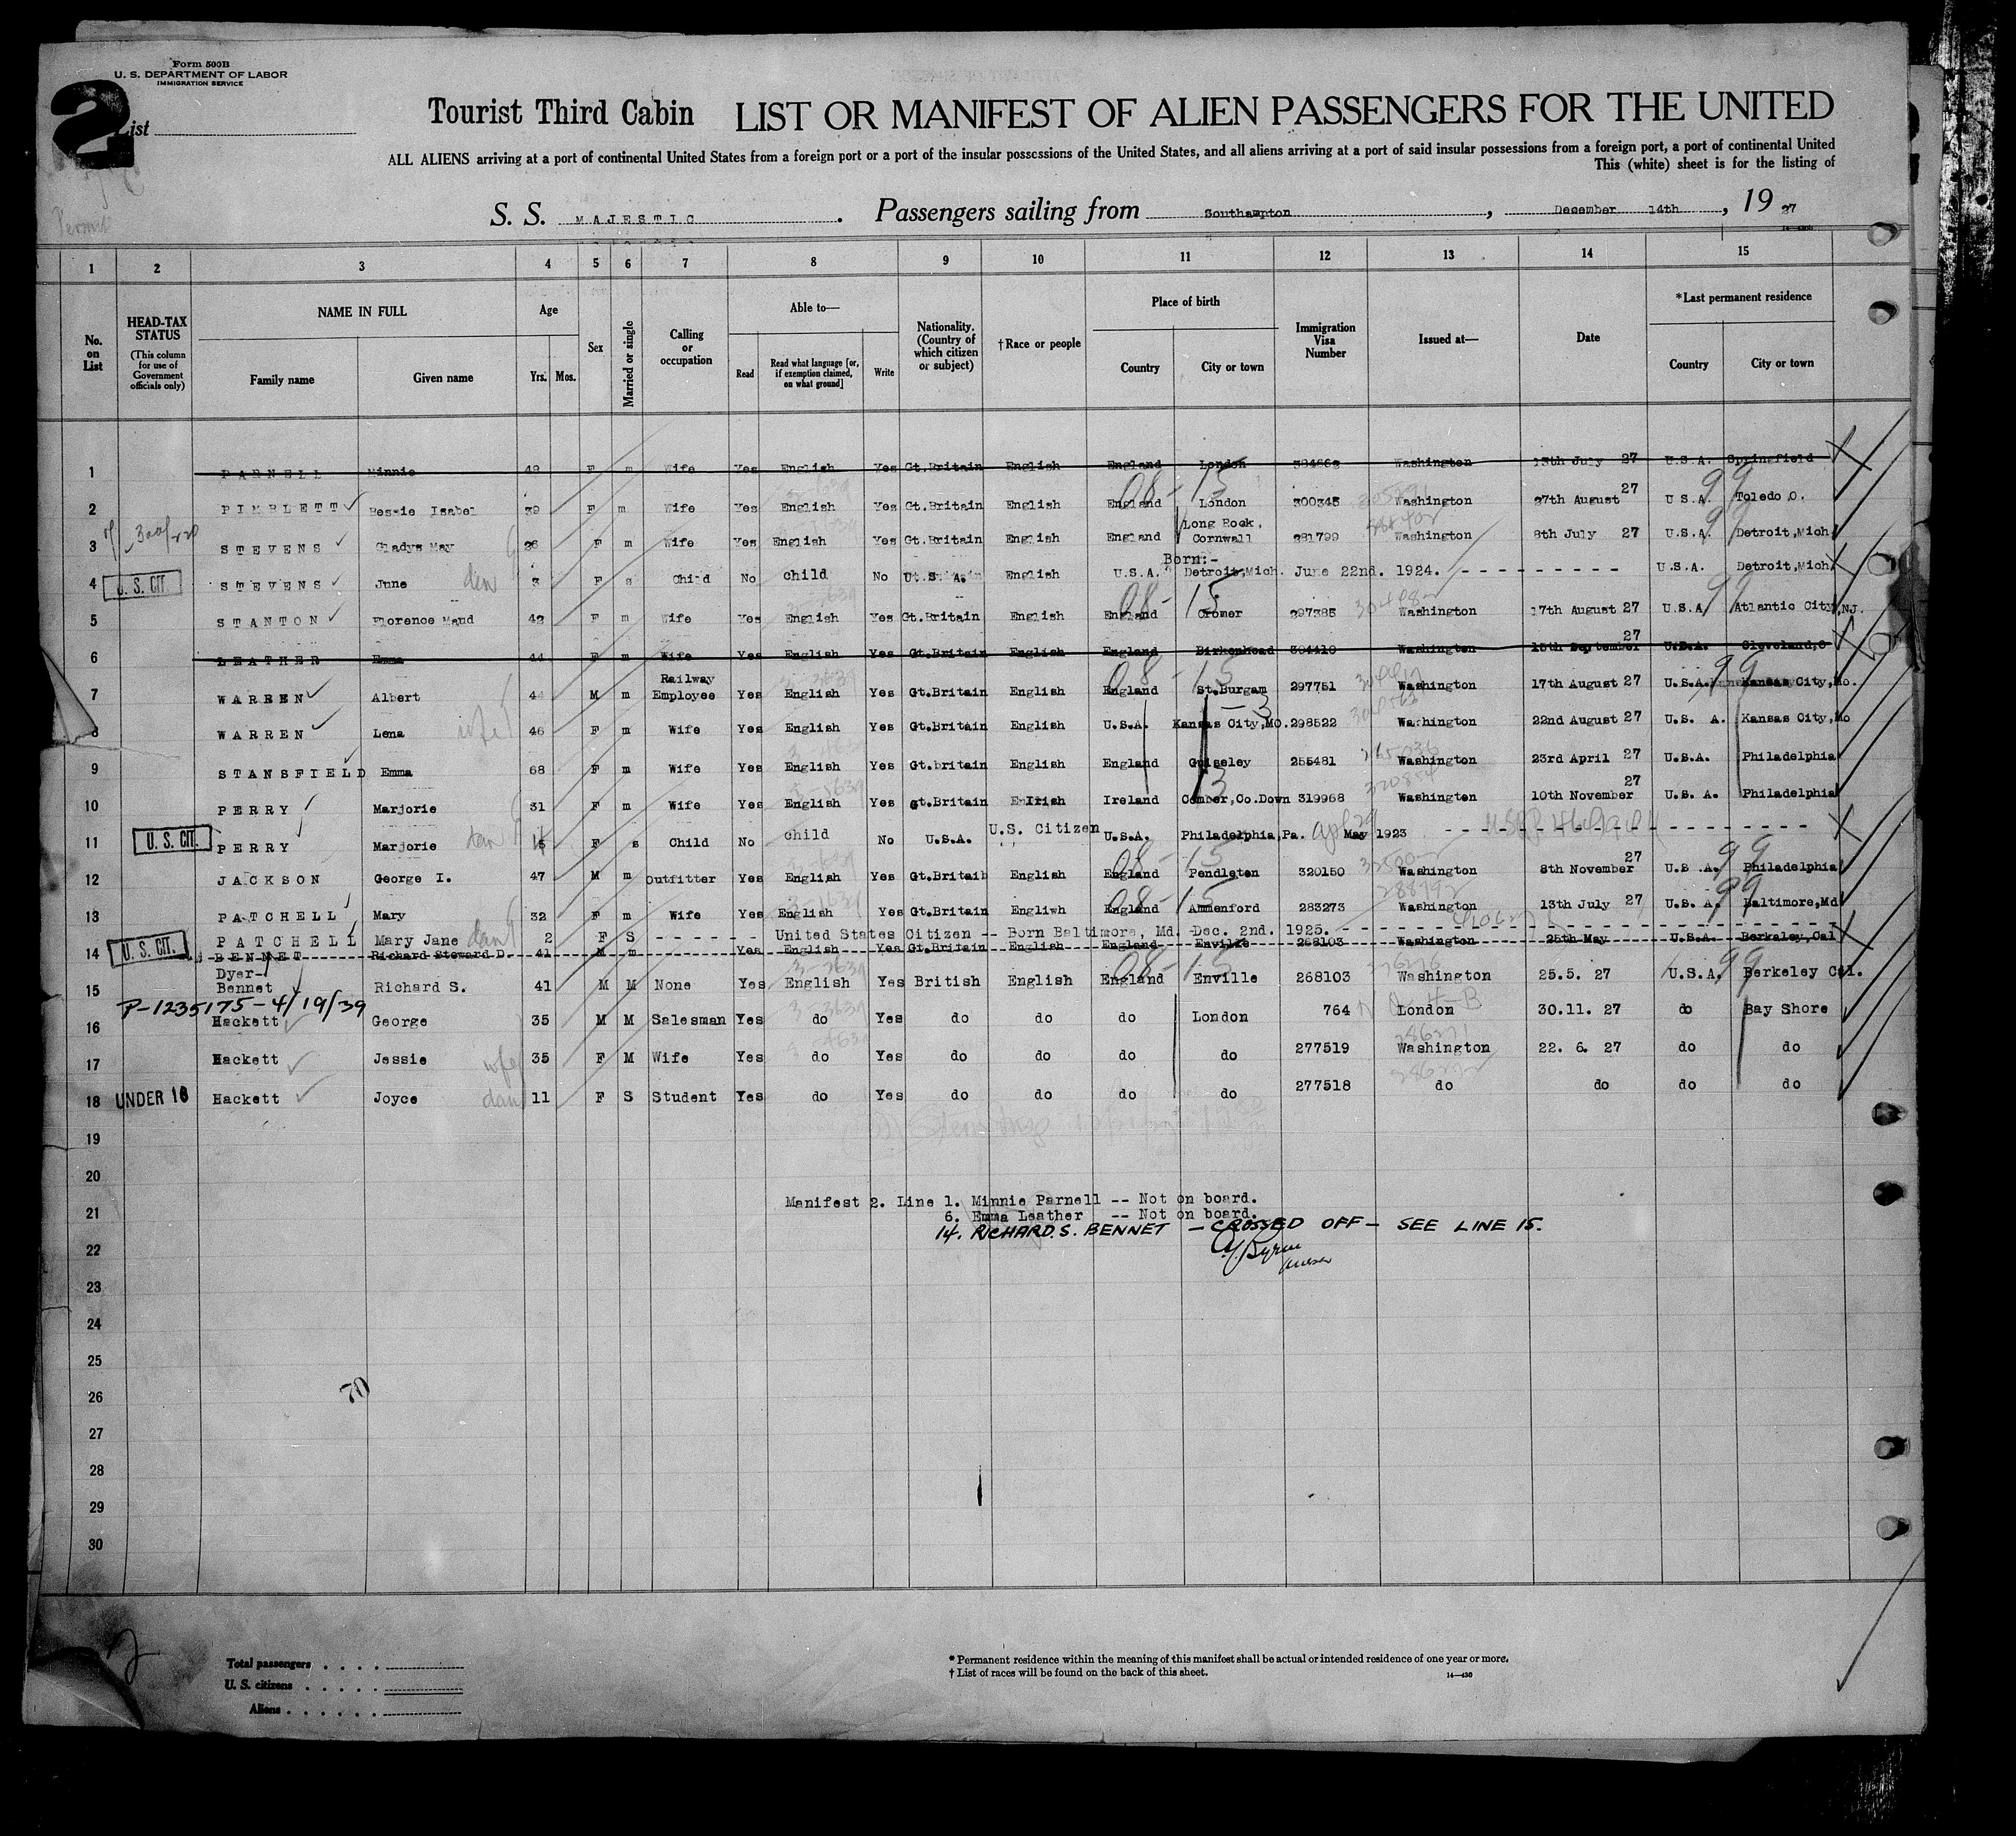 Form 500B
U. S. DEPARTMENT OF LABOR
IMMIGRATION SERVICE
2
List
Tourist Third Cabin LIST OR MANIFEST OF ALIEN PASSENGERS FOR THE UNITED
ALL ALIENS arriving at a port of continental United States from a foreign port or a port of the insular possessions of the United States, and all aliens arriving at a port of said insular possessions from a foreign port, a port of continental United
This (white) sheet is for the listing of
Permit
S. S. MAJESTIC. Passengers sailing from Southampton, December 14th, 19 27
1 2 3 4 5 6 7 8 9 10 11 12 13 14 15
No. on List
HEAD-TAX STATUS (This column for use of Government officials only)
NAME IN FULL Family name Given name
Age Yrs. Mos.
Sex
Married or single
Calling or occupation
Able to— Read Read what language [or, if exemption claimed, on what ground] Write
Nationality. (Country of which citizen or subject)
†Race or people
Place of birth Country City or town
Immigration Visa Number
Issued at—
Date
*Last permanent residence Country City or town
1 PARNELL Minnie 48 F m Wife Yes English Yes Gt.Britain English England London Washington 13th July 27 U.S.A. Springfield
2 PIMBLETT Bessie Isabel 39 F m Wife Yes English Yes Gt.Britain English England London 300345 Washington 27th August 27 U S A. Toledo O.
3 STEVENS Gladys May 26 F m Wife Yes English Yes Gt.Britain English England Long Rock, Cornwall 281799 Washington 8th July 27 U.S.A. Detroit,Mich
4 U. S. CIT. STEVENS June dau 3 F s Child No child No U.S.A. English U.S.A. Born:- Detroit,Mich. June 22nd. 1924. - - - - - - - - - - U.S.A. Detroit,Mich.
5 STANTON Florence Maud 42 F m Wife Yes English Yes Gt.Britain English England Cromer 297385 Washington 17th August 27 U.S.A Atlantic City,NJ.
6 LEATHER Emma 44 F m Wife Yes English Yes Gt.Britain English England Birkenhead 304410 Washington 15th September 27 U.S.A. Cleveland,O
7 WARREN Albert 44 M m Railway Employee Yes English Yes Gt.Britain English England St.Burgam 297751 Washington 17th August 27 U.S.A. Kansas City,Mo.
8 WARREN Lena wife 46 F m Wife Yes English Yes Gt.Britain English U.S.A. Kansas City,MO. 298522 Washington 22nd August 27 U.S. A. Kansas City,Mo
9 STANSFIELD Emma 68 F m Wife Yes English Yes Gt.britain English England Guiseley 255481 Washington 23rd April 27 U.S.A. Philadelphia
10 PERRY Marjorie 31 F m Wife Yes English Yes Gt.Britain Irish Ireland Comber,Co.Down 319968 Washington 10th November 27 U.S. A. Philadelphia
11 U. S. CIT. PERRY Marjorie dau F s Child No child No U.S.A. U.S. Citizen U.S.A. Philadelphia,Pa. May 1923 - - - - - - - - - -
12 JACKSON George I. 47 M m Outfitter Yes English Yes Gt.Britaib English England Pendleton 320150 Washington 8th November 27 U.S .A. Philadelphia
13 PATCHELL Mary 32 F m Wife Yes English Yes Gt.Britain Engliwh England Ammenford 283273 Washington 13th July 27 U.S. A. Baltimore,Md
U. S. CIT. PATCHELL Mary Jane dau 2 F S - - - - - - United States Citizen -- Born Baltimore, Md. Dec. 2nd. 1925. - - - - - - - - - -
14 BENNET Richard Steward D. 41 M m Yes English Yes Gt.Britain English England Enville 268103 Washington 25th May U.S.A. Berkeley,Cal
15 Dyer-Bennet Richard S. 41 M M None Yes English Yes British English England Enville 268103 Washington 25.5. 27 U.S.A. Berkeley Cal.
P-1235175-4/19/39
16 Hackett George 35 M M Salesman Yes do Yes do do do London 764 London 30.11. 27 do Bay Shore
17 Hackett Jessie wife 35 F M Wife Yes do Yes do do do do 277519 Washington 22. 6. 27 do do
18 UNDER 16 Hackett Joyce dau 11 F S Student Yes do Yes do do do do 277518 do do do do
19
20
21
22
23
24
25
26
27
28
29
30
Manifest 2. Line 1. Minnie Parnell -- Not on board.
6. Emma Leather -- Not on board.
14. RICHARD. S. BENNET — CROSSED OFF — SEE LINE 15.
70
2
Total passengers . . . .
U. S. citizens . . . . .
Aliens . . . . . .
* Permanent residence within the meaning of this manifest shall be actual or intended residence of one year or more.
† List of races will be found on the back of this sheet.
14—430